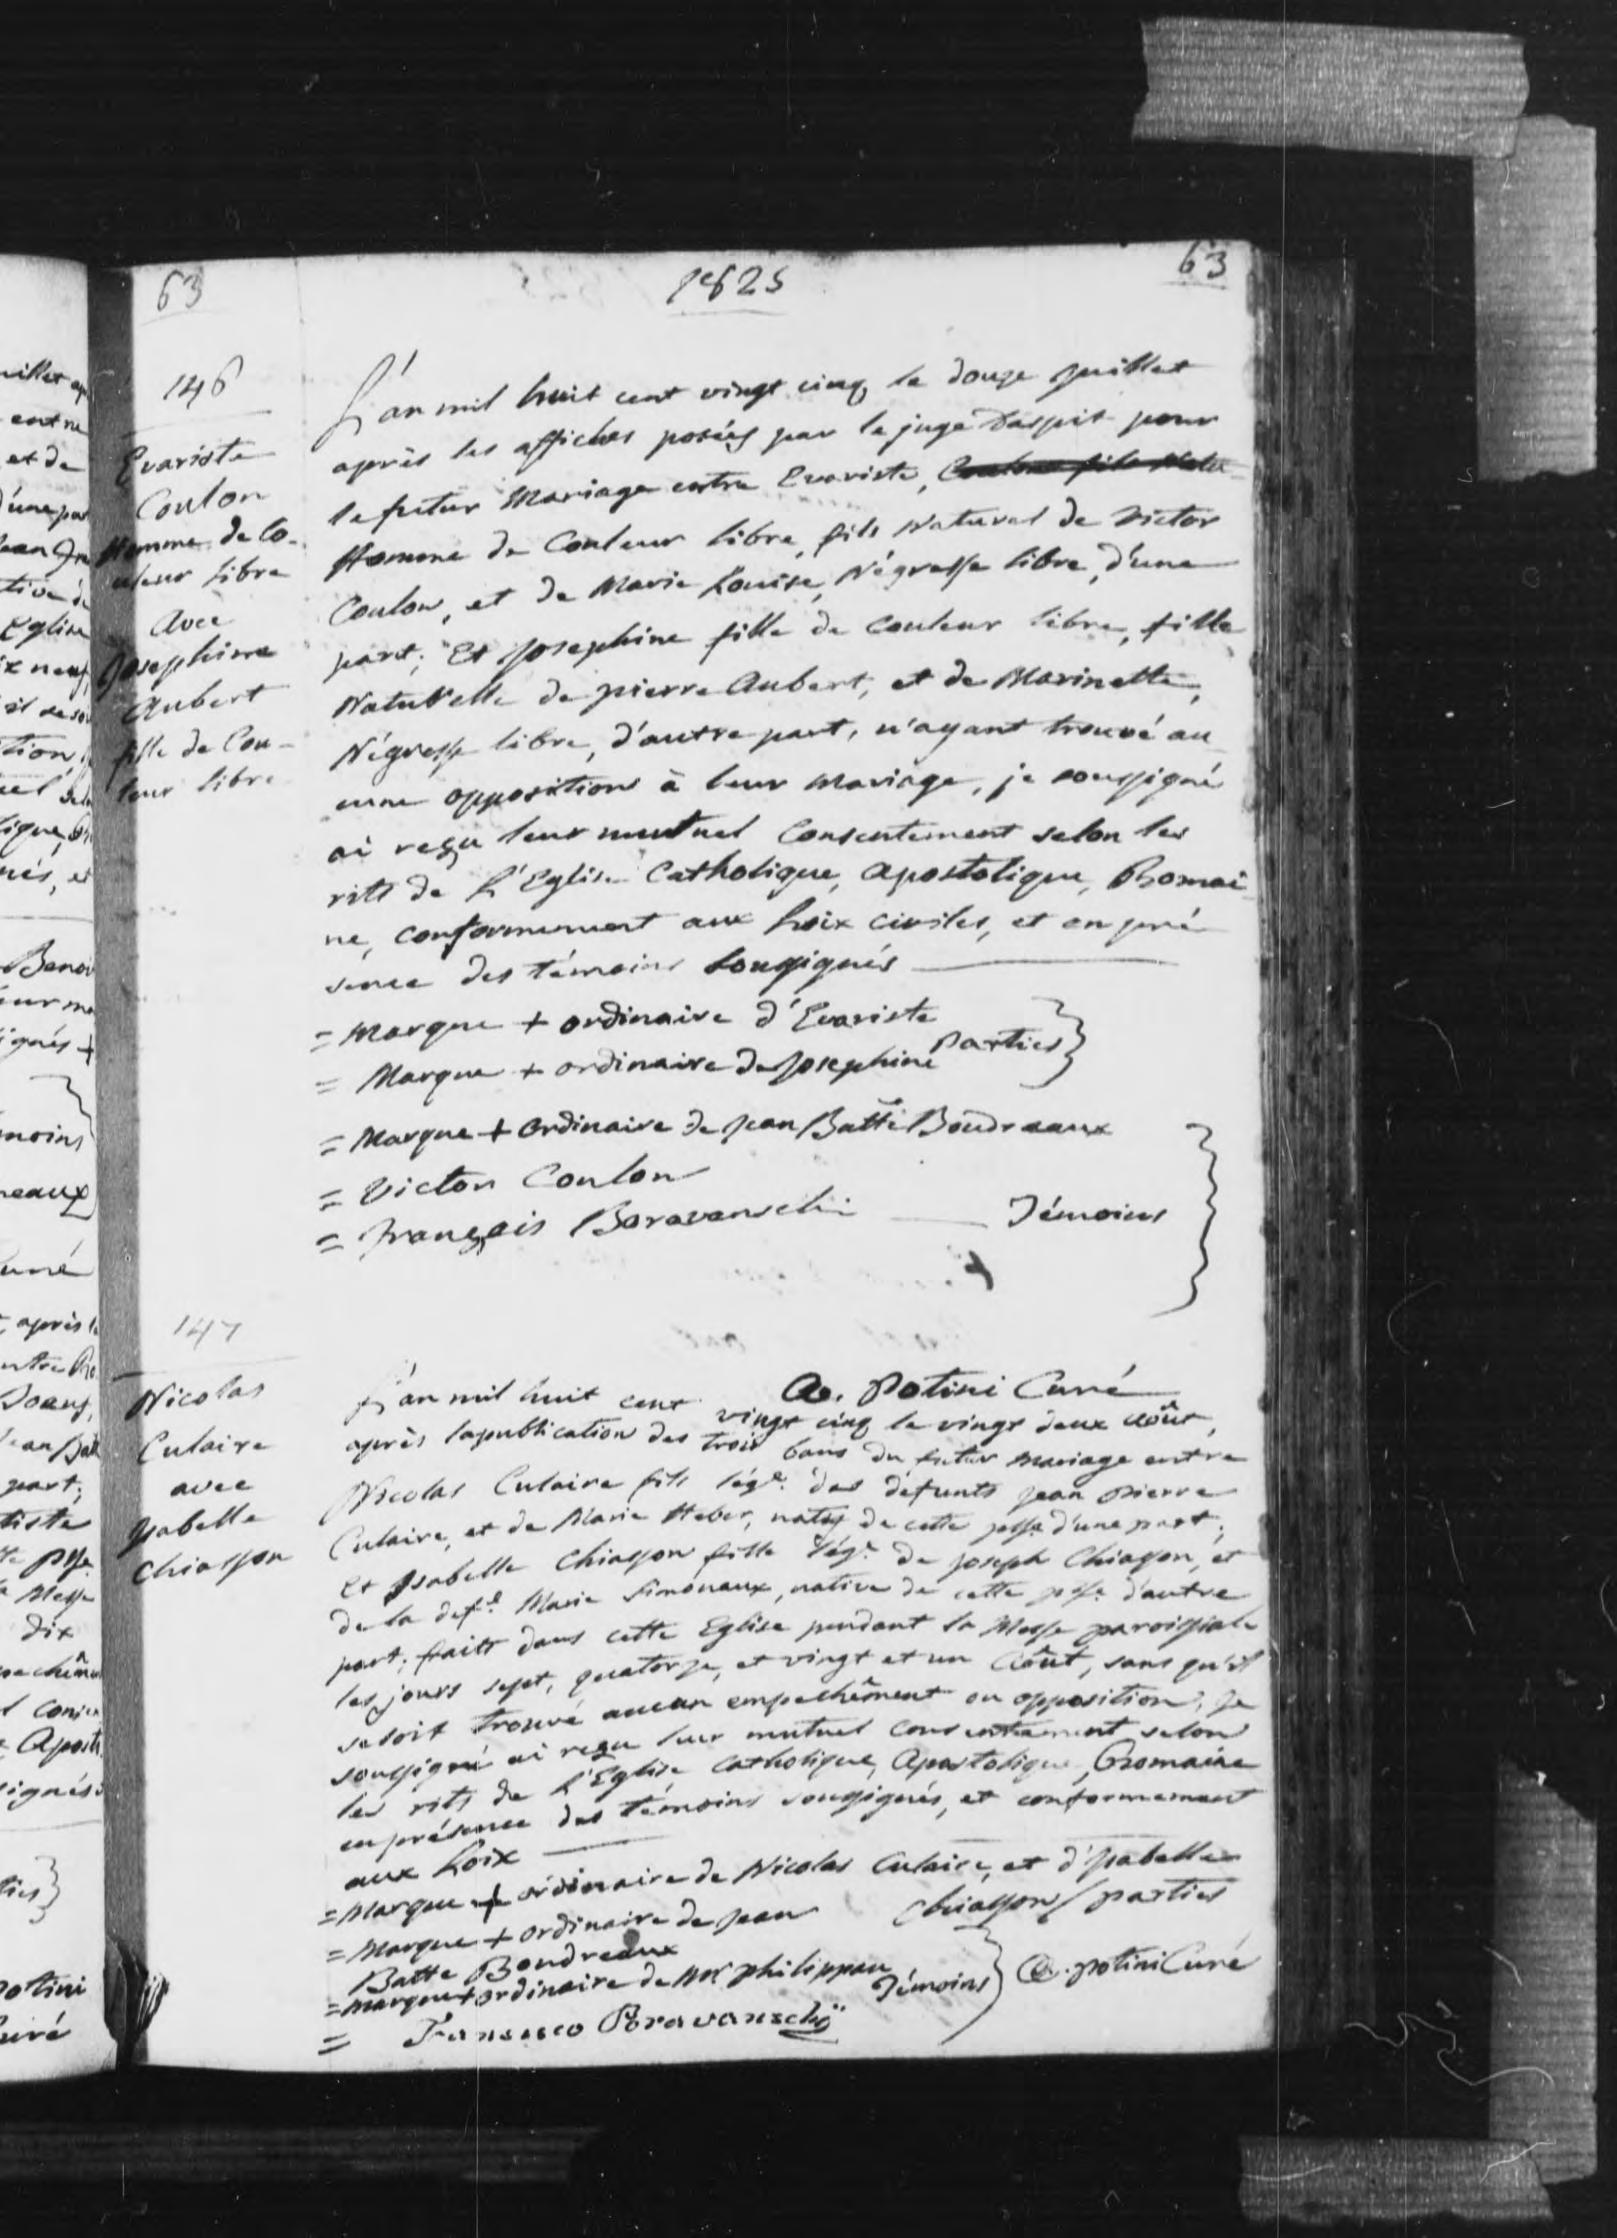 63
1825
63
146
Evariste
Coulon
Homme de Co-
uleur libre
Avec
Josephine
Aubert
fille de Cou-
leur libre
L'an mil huit cent vingt cinq le douze juillet
après les affiches posées par le juge Daspit pour
le futur Mariage entre Evariste, Coulon fils Natu-
Homme de Couleur libre, fils Naturel de Victor
Coulon, et de Marie Louise, Négresse libre, d'une
part; Et Josephine fille de Couleur libre, fille
Naturelle de pierre Aubert, et de Marinette,
Négresse libre, d'autre part, n'ayant trouvé au
cune opposition à leur mariage, je soussigné
ai reçu leur mutuel Consentement selon les
rits de L'Eglise Catholique, Apostolique, Romai
ne, conformement aux Loix civiles, et en pré
sence des témoins soussignés
= Marque + ordinaire d'Evariste
= Marque + ordinaire de Josephine Parties
= Marque + Ordinaire de Jean Batte Boudreaux
= Victor Coulon
= François Baravanschi Témoins
A. Potini Curé
147
Nicolas
Culaire
avec
Isabelle
Chiasson
L'an mil huit cent vingt cinq le vingt deux Août,
après la publication des trois bans du futur mariage entre
Nicolas Culaire fils lége. des défunts Jean Pierre
Culaire, et de Marie Heber, natif de cette psse d'une part;
Et Isabelle Chiasson fille lége. de Joseph Chiasson, et
de la defte. Marie Simonaux, native de cette psse. d'autre
part; faits dans cette Eglise pendant la Messe paroissiale
les jours sept, quatorze, et vingt et un Août, sans qu'il
se soit trouvé aucun empechêment ou opposition, je
soussigné ai reçu leur mutuel consentement selon
les rits de L'Eglise Catholique, Apostolique, Romaine
en présence des témoins soussignés, et conformement
aux Loix
= Marque + ordinaire de Nicolas Culaire, et d'Isabelle
Chiasson parties
= Marque + ordinaire de Jean
Batte Boudreaux
= Marque + ordinaire de Philippau Témoins
A. Potini Curé
= Fransesco Bravanschÿ